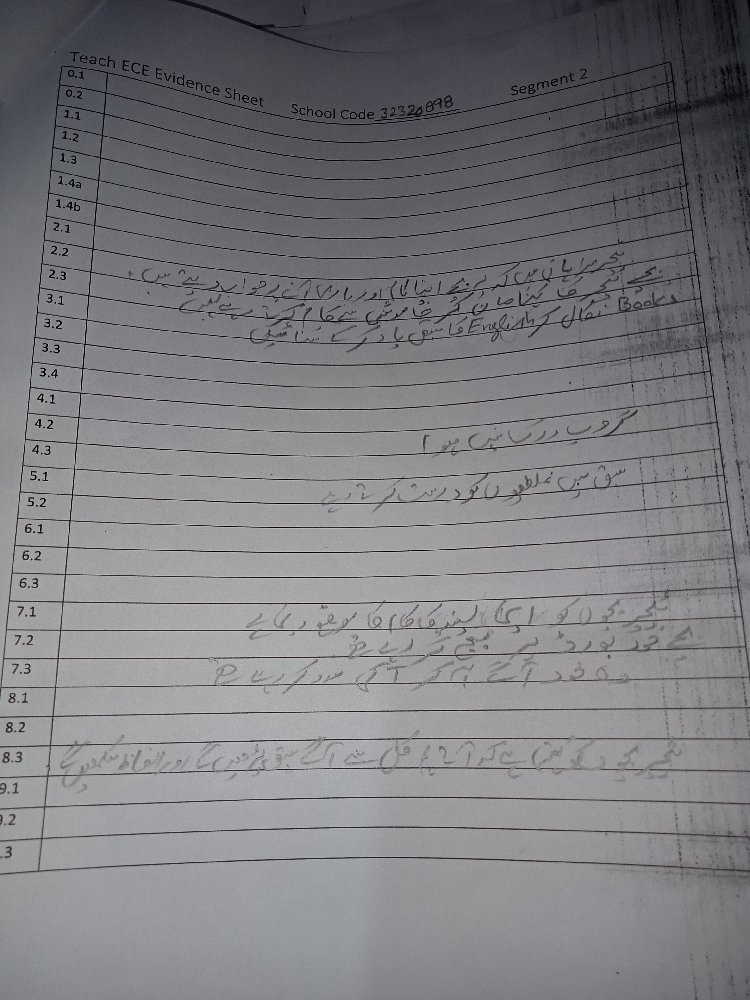 Teach ECE Evidence Sheet School Code 32320898 Segment 2
0.1
0.2
1.1
1.2
1.3
1.4a
1.4b
2.1
2.2
2.3 ٹیچر کہ ہر بچہ اپنا کام اور باری آنے پر جواب دیتے ہیں۔
3.1 بچے ٹیچر کا کہنا مان کر خاموشی سے کام کرتے رہے ہیں
3.2 Books نکال کر English کا سبق یاد کر کے سنائیں
3.3
3.4
4.1
4.2
4.3 گروپ ورک نہیں ہوا
5.1
5.2 سبق میں غلطیوں کو درست کرتے رہے
6.1
6.2
6.3
7.1 ٹیچر بچوں کو اپنی پسند کا کام کا موقع دیتا ہے
7.2 بچے خود بورڈ پر میچ کر رہے تھے
7.3 وہ خود آگے آ کر مدد کر رہے تھے
8.1
8.2
8.3 ٹیچر بچوں کو کہتا ہے کہ آج ہم کل سے آگے سبق پڑھیں گے اور الفاظ سیکھیں گے
9.1
9.2
.3